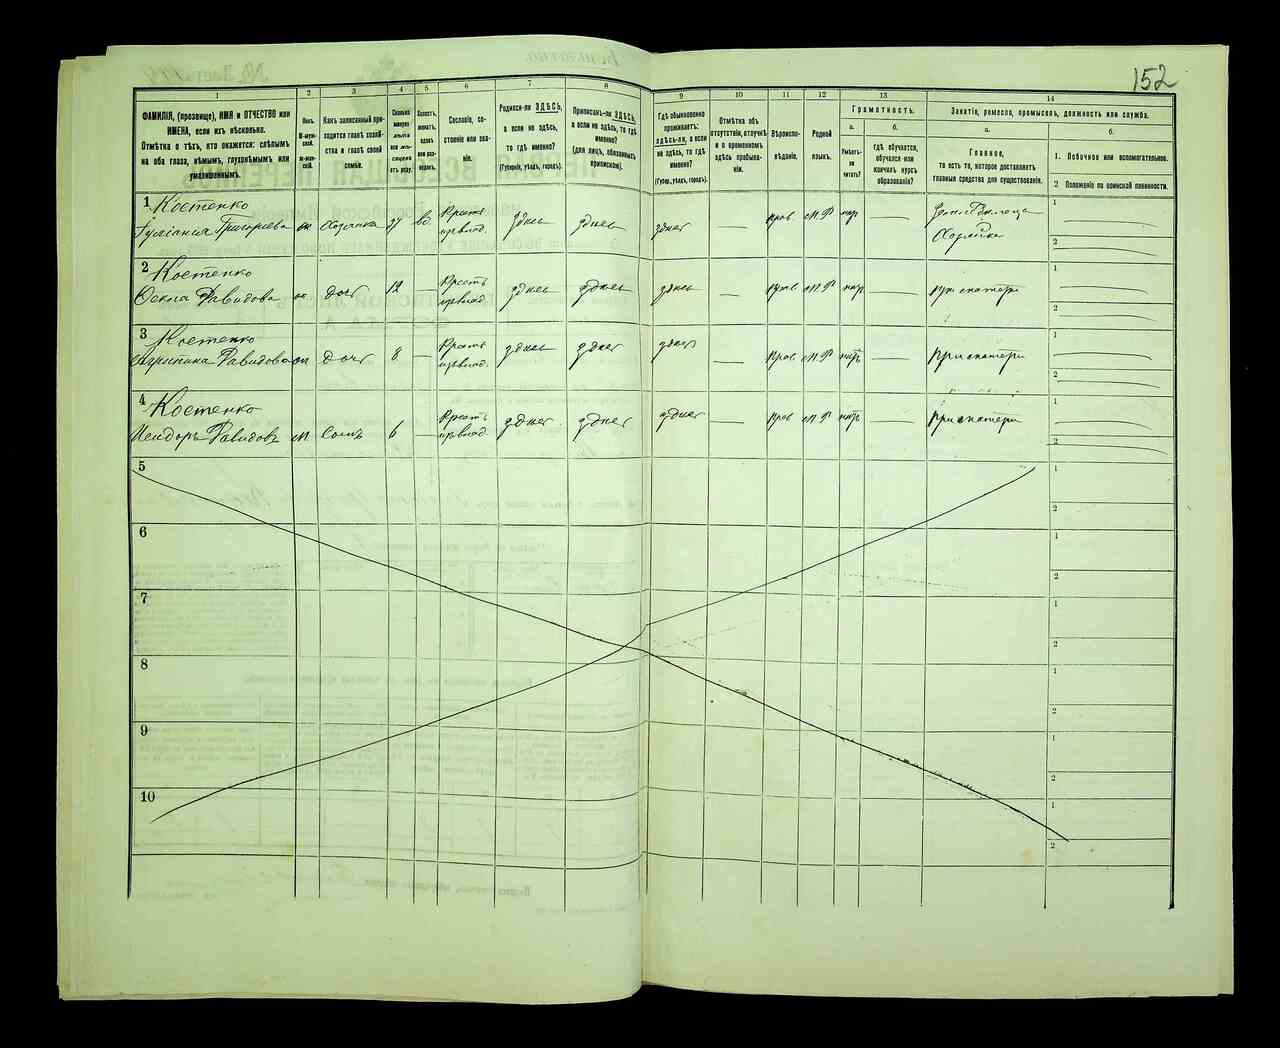 152
1
2
3
4
5
6
7
8
9
10
11
12
13
14
ФАМИЛІЯ, (прозвище), ИМЯ и ОТЧЕСТВО или
ИМЕНА, если ихъ нѣсколько.
Отмѣтка о тѣхъ, кто окажется: слѣпымъ
на оба глаза, нѣмымъ, глухонѣмымъ или
умалишеннымъ.
Полъ.
М-муж-
ской.
Ж-жен-
скій.
Какъ записанный при-
ходится главѣ хозяй-
ства и главѣ своей
семьи.
Сколько
минуло
лѣтъ
или мѣ-
сяцевъ
отъ роду.
Холостъ,
женатъ,
вдовъ
или раз-
веденъ.
Сословіе, со-
стояніе или зва-
ніе.
Родился-ли ЗДѢСЬ,
а если не здѣсь,
то гдѣ именно?
(Губернія, уѣздъ, городъ).
Приписанъ-ли ЗДѢСЬ,
а если не здѣсь, то гдѣ
именно?
(для лицъ, обязанныхъ
припиской).
Гдѣ обыкновенно
проживаетъ:
здѣсь-ли, а если
не здѣсь, то гдѣ
именно?
(Губер., уѣздъ, городъ).
Отмѣтка объ
отсутствіи, отлучкѣ
и о временномъ
здѣсь пребыва-
ніи.
Вѣроиспо-
вѣданіе.
Родной
языкъ.
Грамотность.
а.
Умѣетъ-
ли
читать?
б.
Гдѣ обучается,
обучался или
кончилъ курсъ
образованія?
Занятіе, ремесло, промыселъ, должность или служба.
а.
Главное,
то есть то, которое доставляетъ
главныя средства для существованія.
б.
1. Побочное или вспомогательное.
2 Положеніе по воинской повинности.
1 Костенко
Іуліанія Григорьева ж Хозяйка 37 вд. Крестъ здѣсь здѣсь здѣсь — прав М Р нѣт —
Хозяйка
1
2
2 Костенко
Ѳекла Давидова ж Дочь 12 — Крестъ здѣсь здѣсь здѣсь — прав М Р нѣт — при матери
1
2
3 Костенко
Агрипина Давидова ж Дочь 8 — Крестъ здѣсь здѣсь здѣсь прав. М Р нѣт — при матери
1
2
4 Костенко
Исидоръ Давидовъ м Сынъ 6 — Крестъ здѣсь здѣсь здѣсь — прав М Р нѣт — при матери
1
2
5
1
2
6
1
2
7
1
2
8
1
2
9
1
2
10
1
2